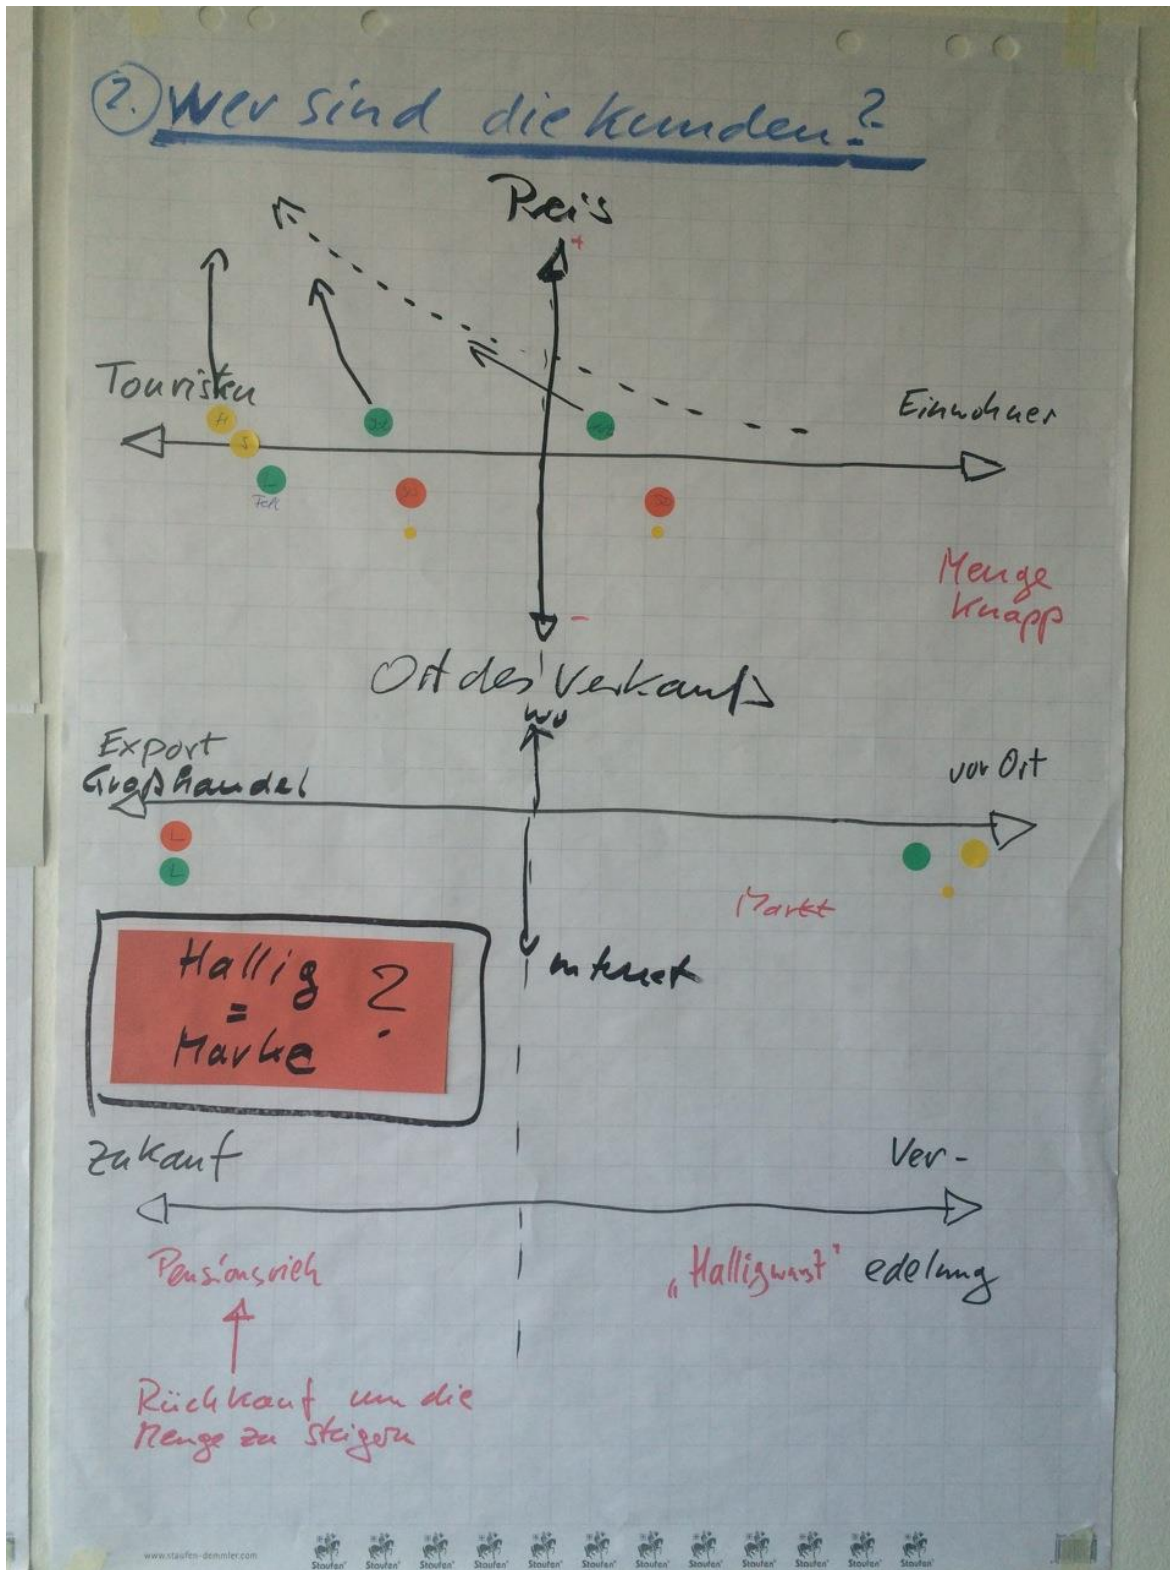 2. Wer sind die Kunden?
Preis
+
Touristen
Einwohner
H
S
L
-
Menge
Knapp
Ort des Verkaufs
wo
Export
Großhandel
vor Ort
L
L
Markt
Internet
Hallig ?
=
Marke
Zukauf
Ver-
Pensionsvieh
„Halligwurst“ edelung
Rückkauf um die
Menge zu steigern
www.staufen-demmler.com
Staufen Staufen Staufen Staufen Staufen Staufen Staufen Staufen Staufen Staufen Staufen Staufen